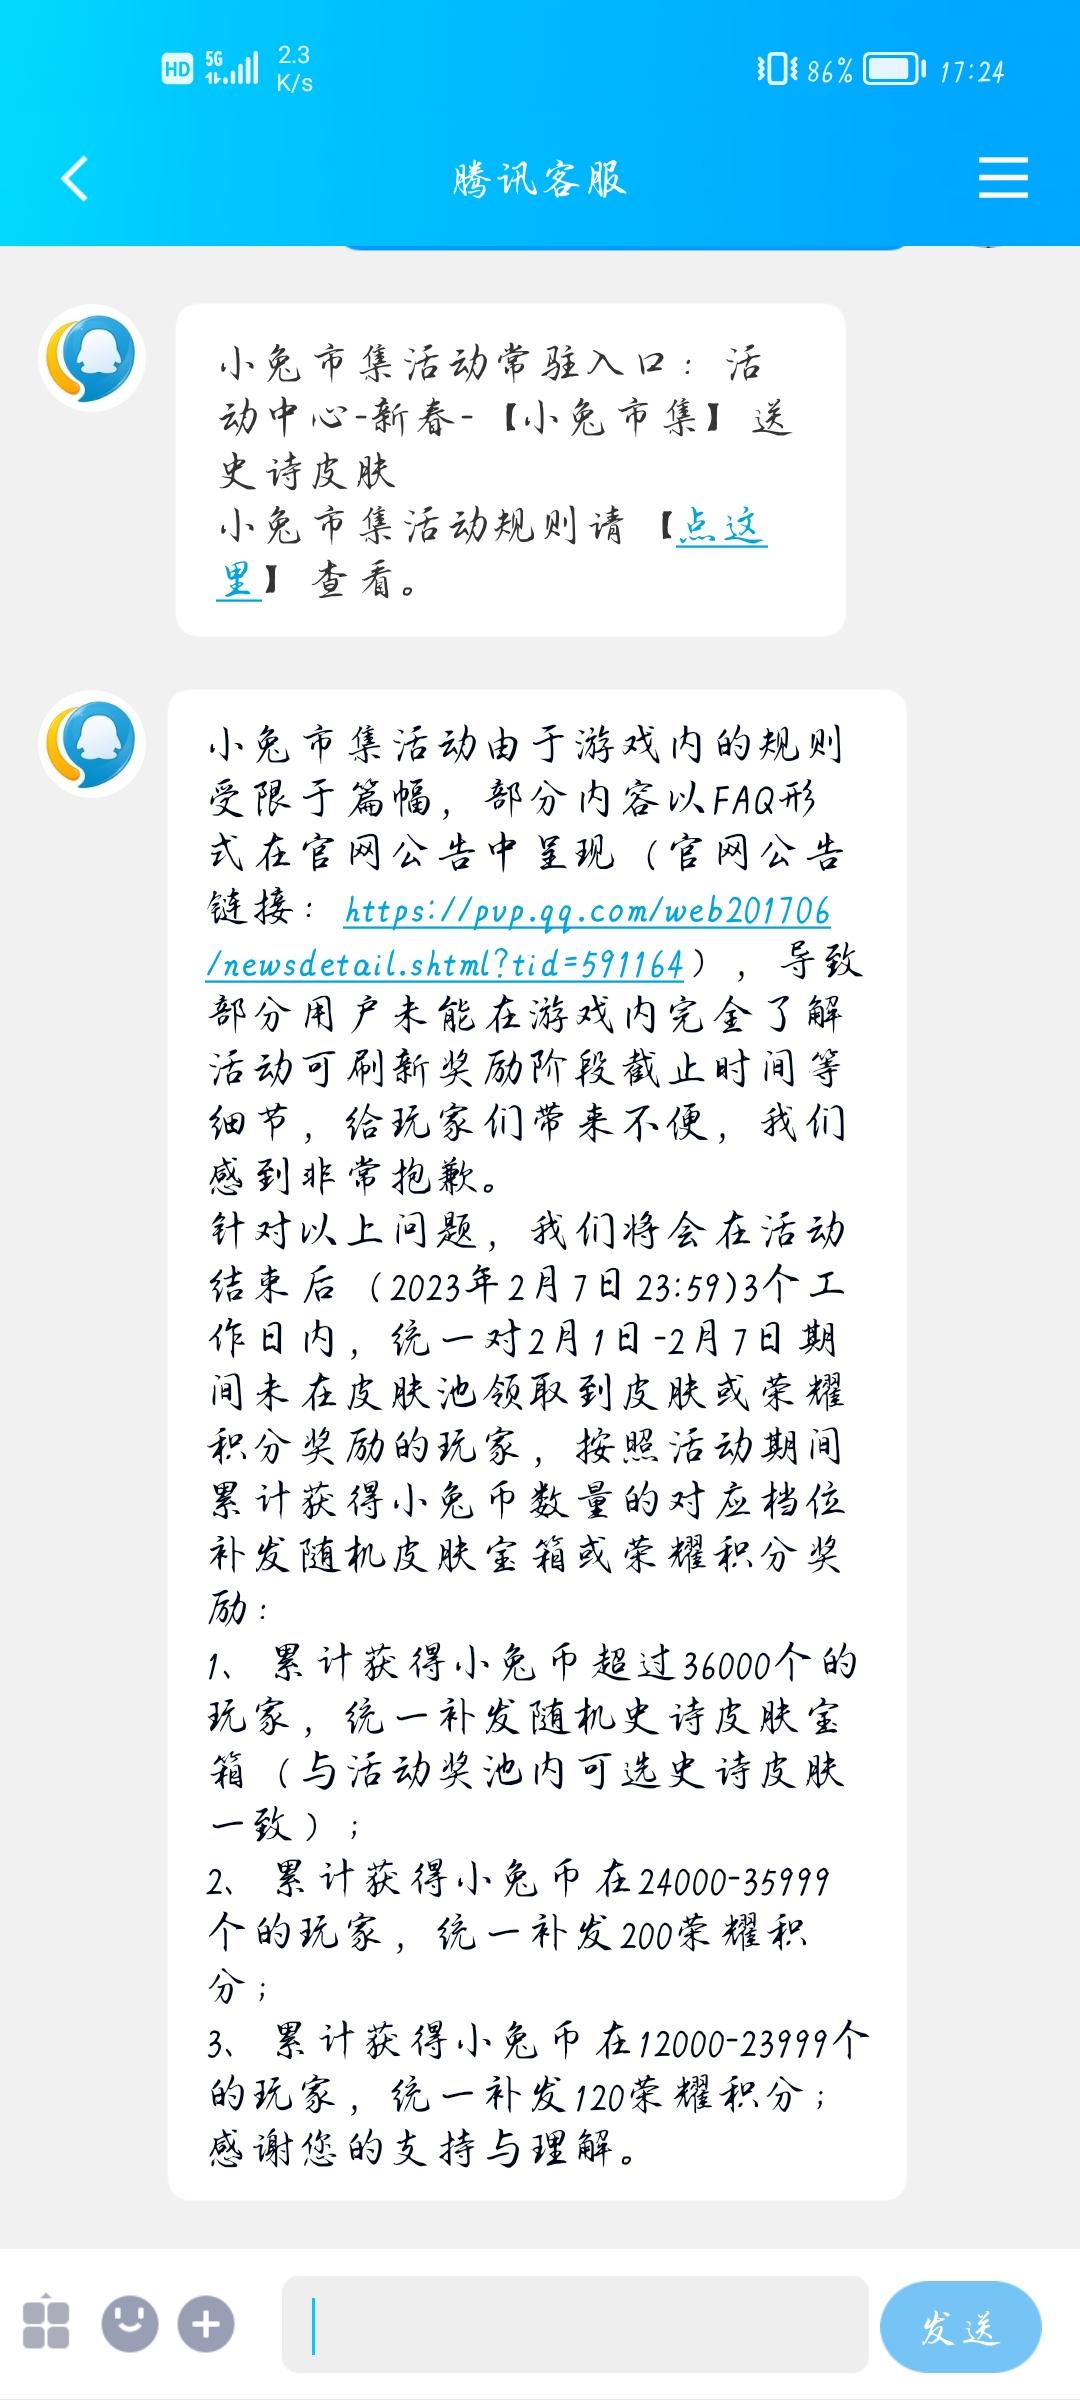 HD 5G 2.3 K/s 86% 17:24
腾讯客服
小兔市集活动常驻入口：活
动中心-新春-【小兔市集】送
史诗皮肤
小兔市集活动规则请【点这
里】查看。
小兔市集活动由于游戏内的规则
受限于篇幅，部分内容以FAQ形
式在官网公告中呈现（官网公告
链接：https://pvp.qq.com/web201706
/newsdetail.shtml?tid=591164），导致
部分用户未能在游戏内完全了解
活动可刷新奖励阶段截止时间等
细节，给玩家们带来不便，我们
感到非常抱歉。
针对以上问题，我们将会在活动
结束后（2023年2月7日23:59)3个工
作日内，统一对2月1日-2月7日期
间未在皮肤池领取到皮肤或荣耀
积分奖励的玩家，按照活动期间
累计获得小兔币数量的对应档位
补发随机皮肤宝箱或荣耀积分奖
励：
1、累计获得小兔币超过36000个的
玩家，统一补发随机史诗皮肤宝
箱（与活动奖池内可选史诗皮肤
一致）；
2、累计获得小兔币在24000-35999
个的玩家，统一补发200荣耀积
分；
3、累计获得小兔币在12000-23999个
的玩家，统一补发120荣耀积分；
感谢您的支持与理解。
发送